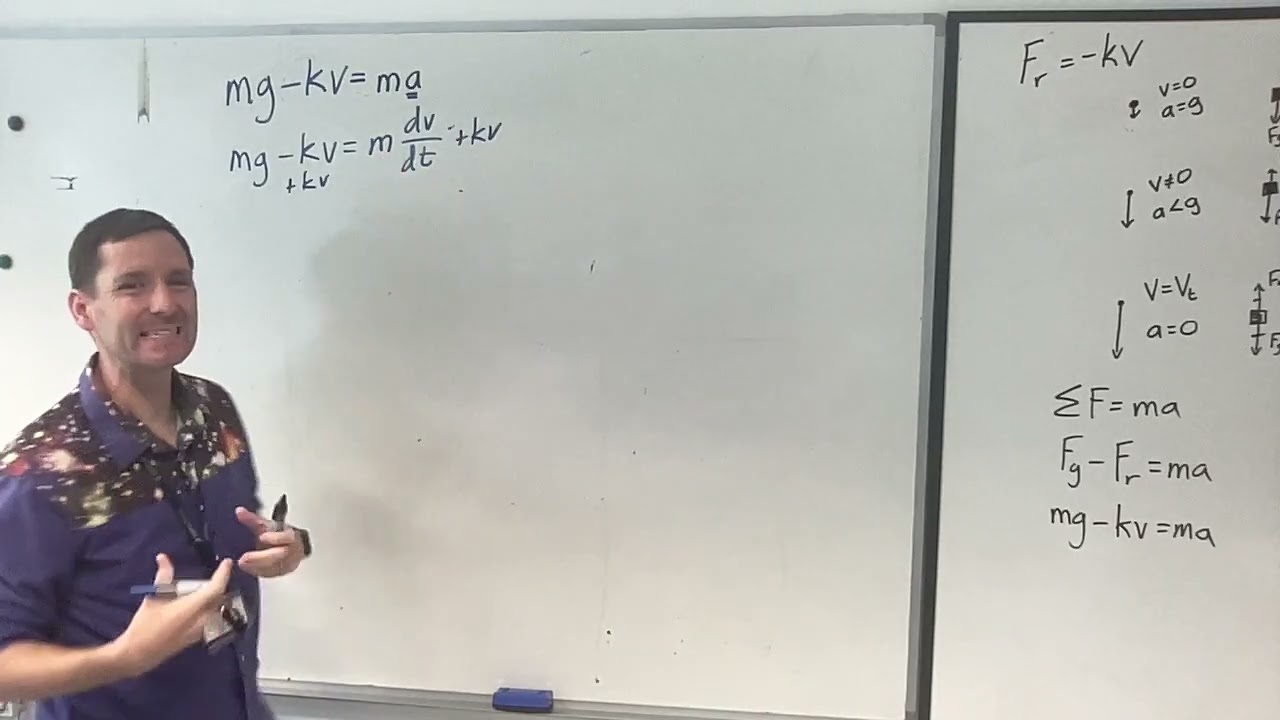 mg-kv=ma
mg-kv=m dv/dt +kv
+kv
Fr=-kv
v=0
a=g
v≠0
a<g
v=vt
a=0
ΣF=ma
Fg-Fr=ma
mg-kv=ma